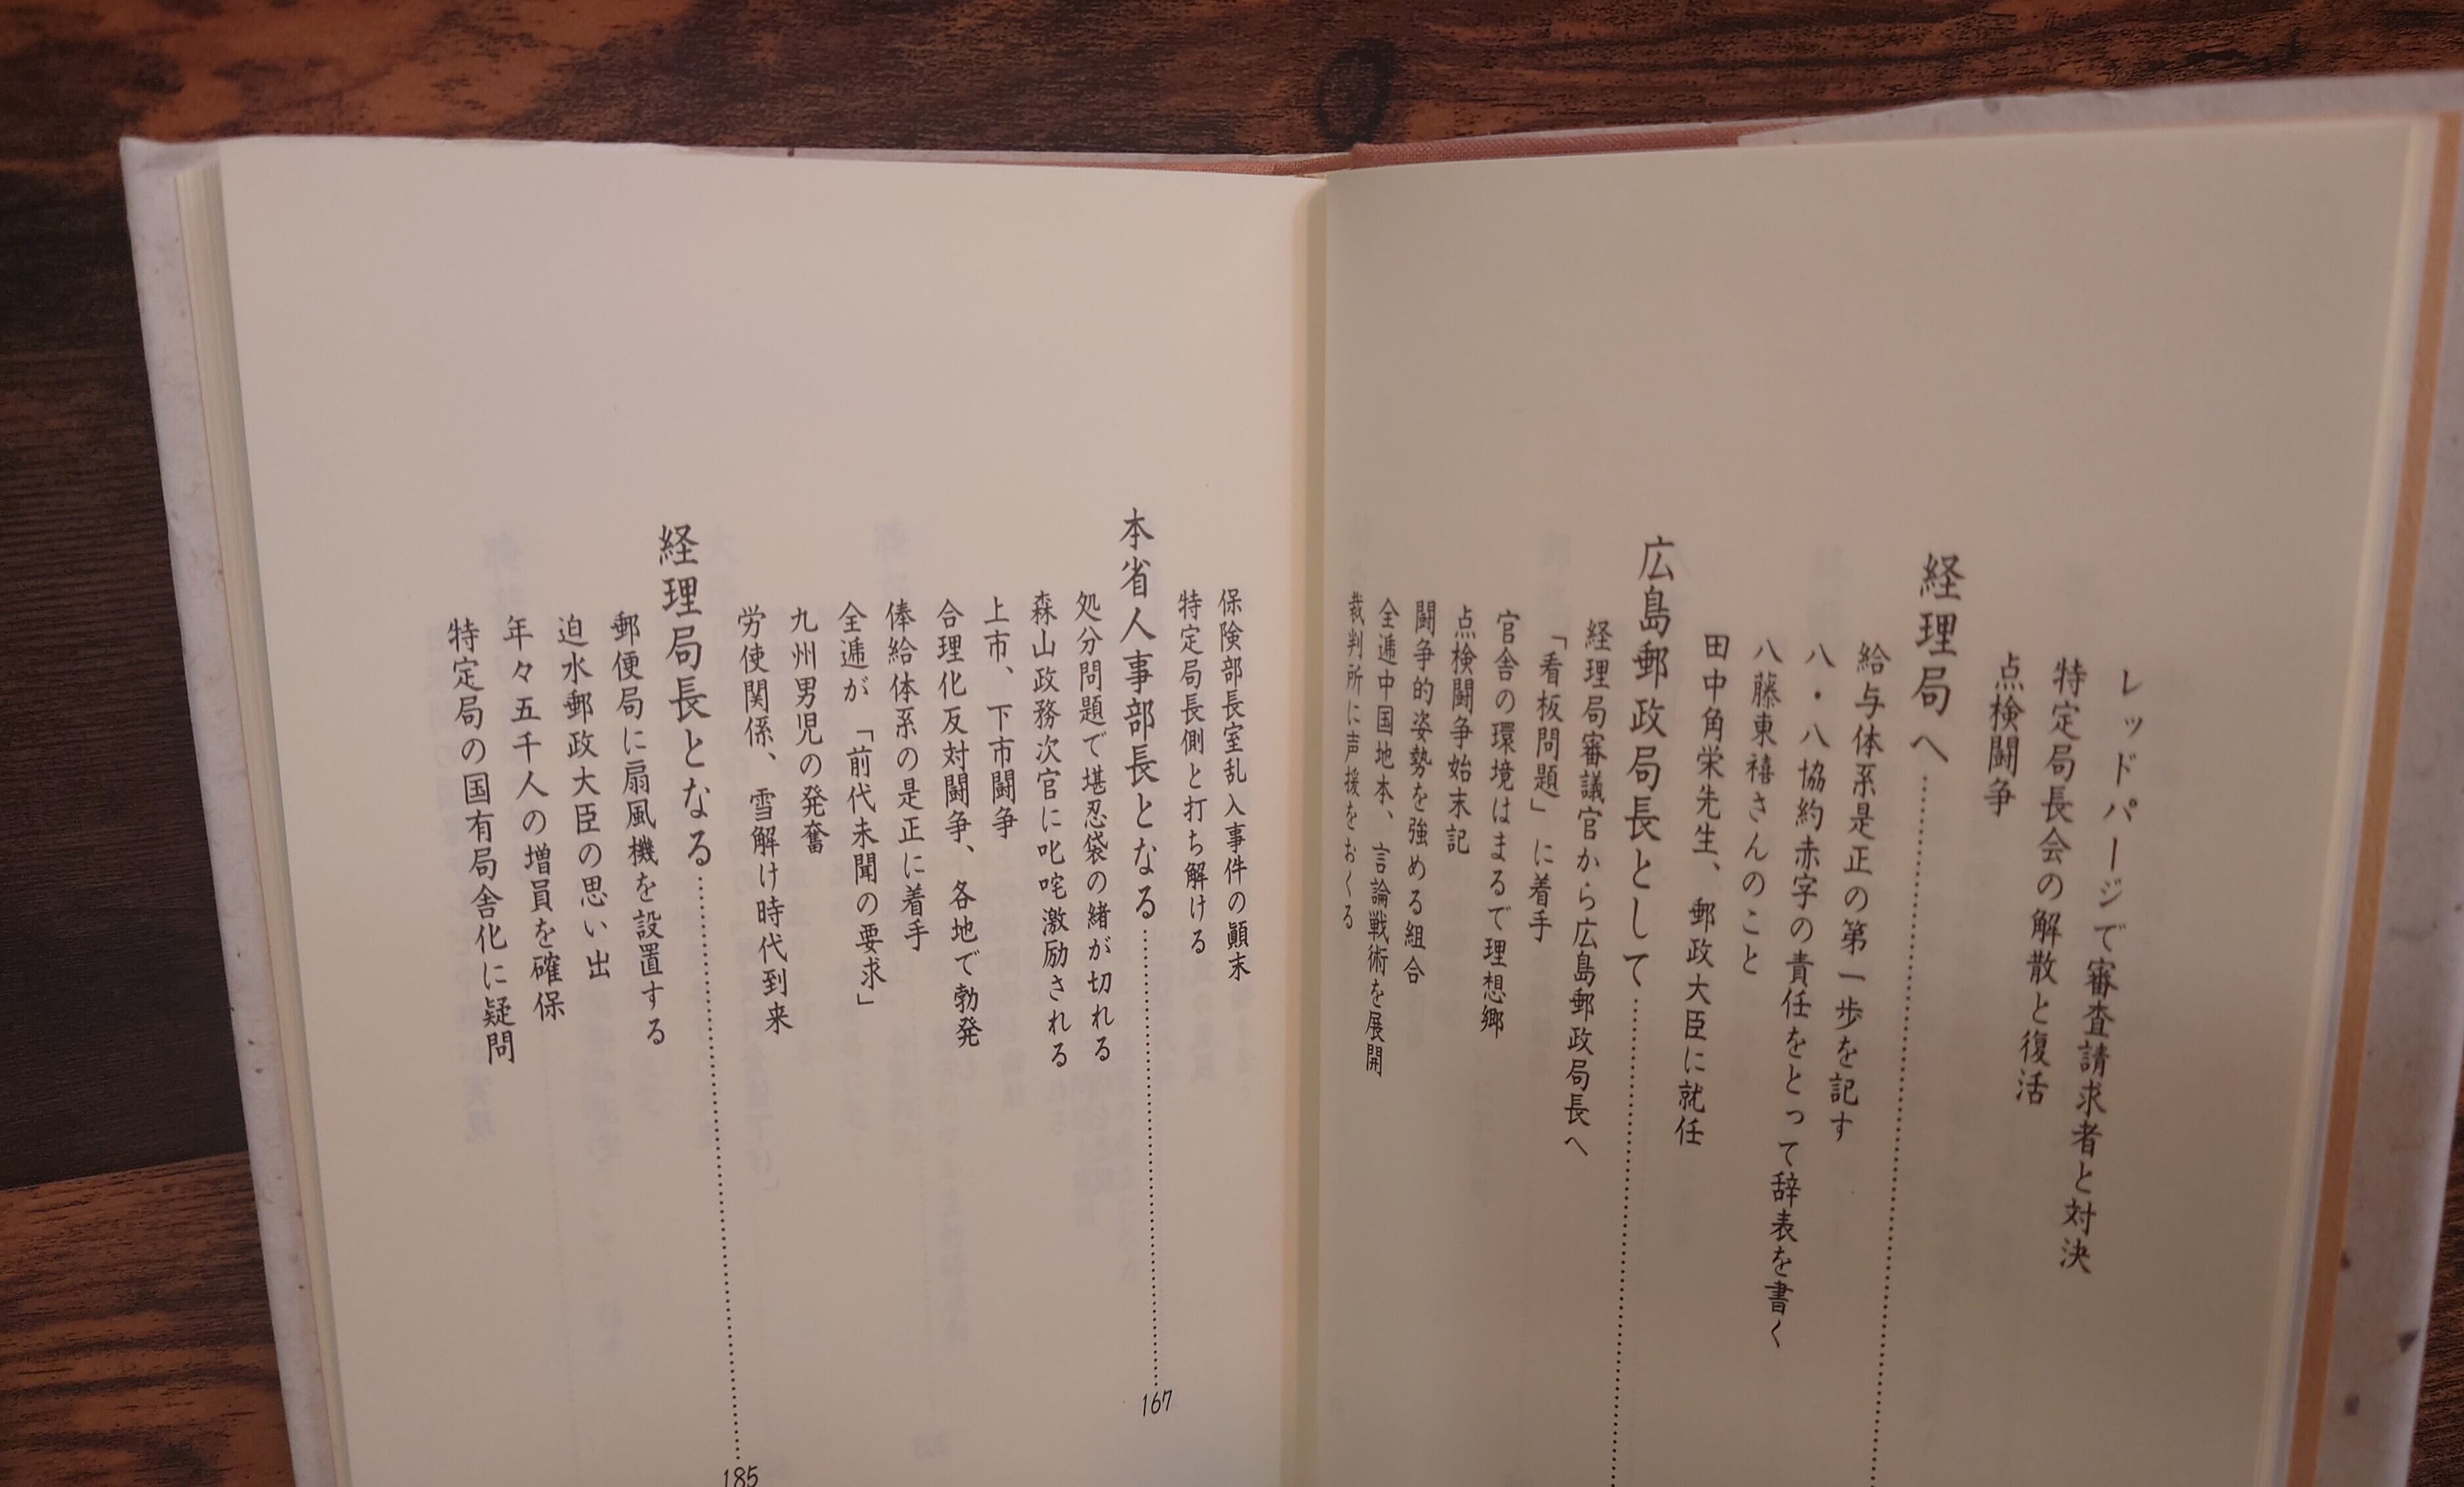 レッドパージで審査請求者と対決
特定局長会の解散と復活
点検闘争
経理局へ
給与体系是正の第一歩を記す
八・八協約赤字の責任をとって辞表を書く
八藤東禧さんのこと
田中角栄先生、郵政大臣に就任
広島郵政局長として
経理局審議官から広島郵政局長へ
「看板問題」に着手
官舎の環境はまるで理想郷
点検闘争始末記
闘争的姿勢を強める組合
全逓中国地本、言論戦術を展開
裁判所に声援をおくる
保険部長室乱入事件の顛末
特定局長側と打ち解ける
本省人事部長となる……167
処分問題で堪忍袋の緒が切れる
森山政務次官に叱咤激励される
上市、下市闘争
合理化反対闘争、各地で勃発
俸給体系の是正に着手
全逓が「前代未聞の要求」
九州男児の発奮
労使関係、雪解け時代到来
経理局長となる……185
郵便局に扇風機を設置する
迫水郵政大臣の思い出
年々五千人の増員を確保
特定局の国有局舎化に疑問